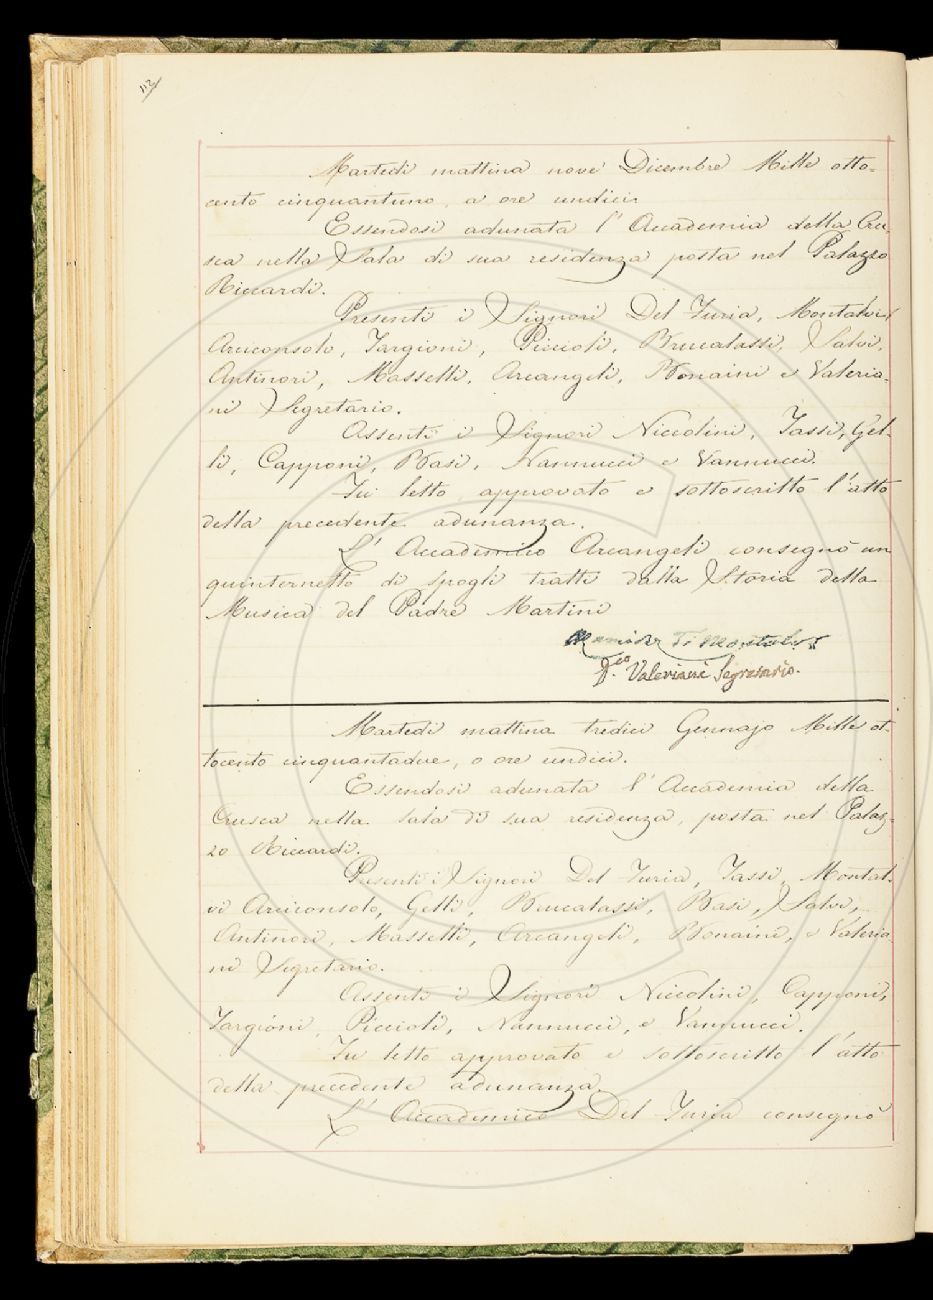 112
Martedì mattina nove Dicembre Mille otto-
cento cinquantuno, a ore undici.
Essendosi adunata l'Accademia della Cru-
sca nella Sala di sua residenza posta nel Palazzo
Riccardi.
Presenti i Signori Del Furia, Montalvi
Arciconsolo, Targioni, Piccioli, Brucalassi, Salvi,
Antinori, Masselli, Arcangeli, Bonaini e Valeria-
ni Segretario.
Assenti i Signori Niccolini, Tassi, Gel-
li, Capponi, Basi, Nannucci e Vannucci.
Fu letto, approvato e sottoscritto l'atto
della precedente adunanza.
L'Accademico Arcangeli consegnò un
quinternetto di spogli tratti dalla Storia della
Musica del Padre Martini
Montalvi
Valeriani Segretario.
Martedì mattina tredici Gennajo Mille ot-
tocento cinquantadue, a ore undici.
Essendosi adunata l'Accademia della
Crusca nella Sala di sua residenza, posta nel Palaz-
zo Riccardi.
Presenti i Signori Del Furia, Tassi, Montal-
vi Arciconsolo, Gelli, Brucalassi, Basi, Salvi,
Antinori, Masselli, Arcangeli, Bonaini, e Valeria-
ni Segretario.
Assenti i Signori Niccolini, Capponi,
Targioni, Piccioli, Nannucci, e Vannucci.
Fu letto approvato e sottoscritto l'atto
della precedente adunanza.
L'Accademico Del Furia consegnò